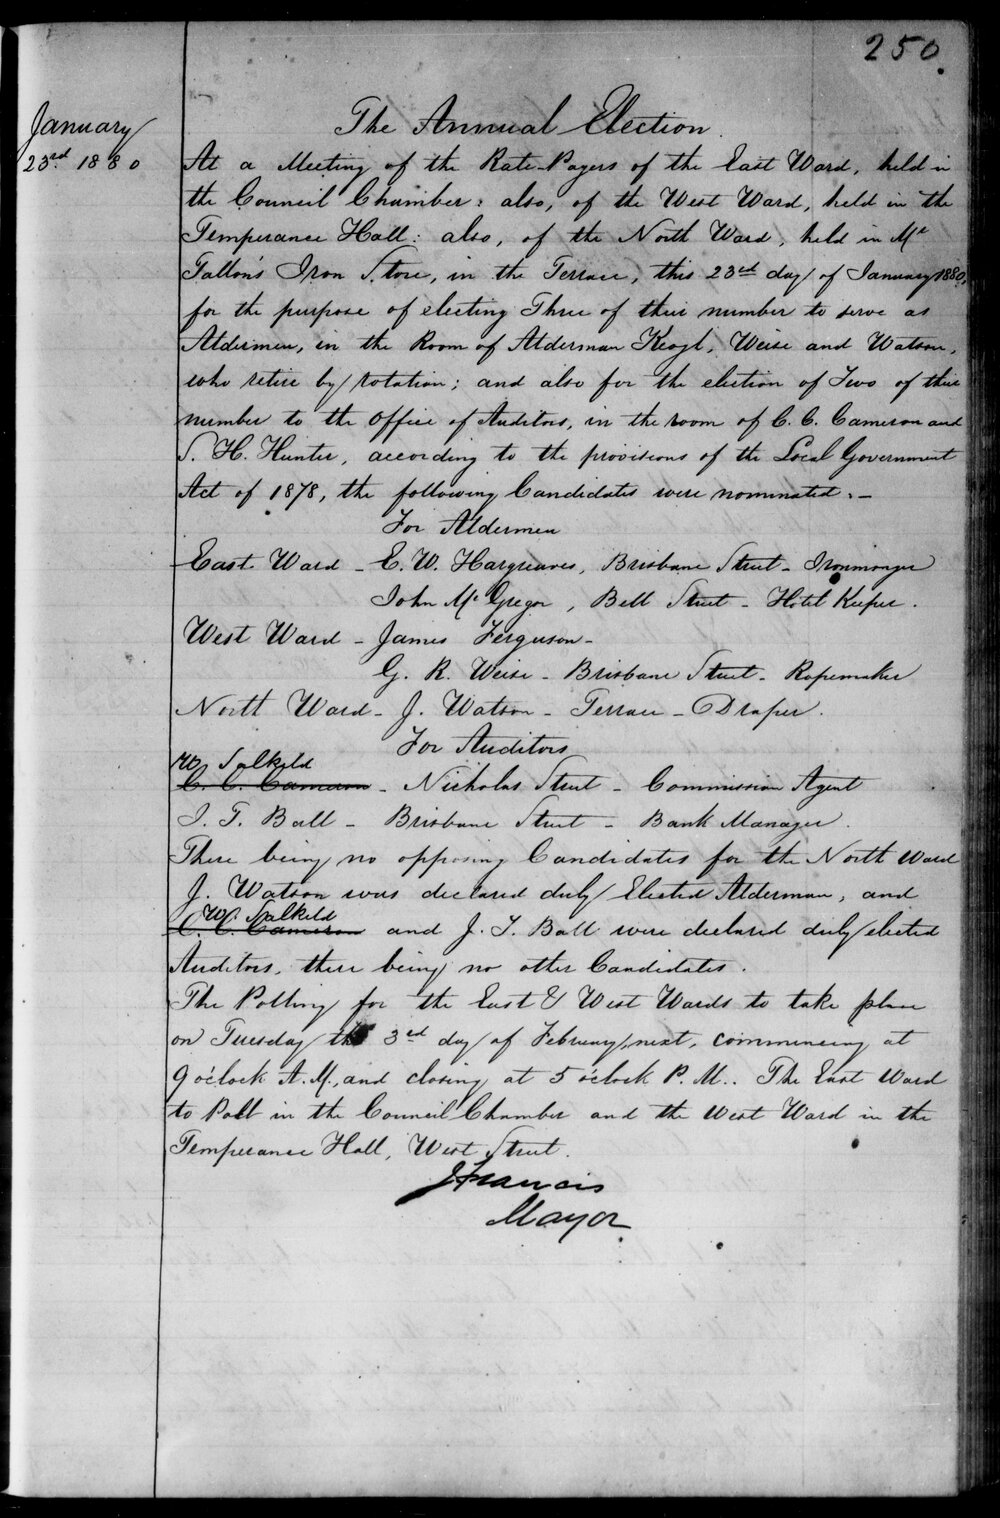 250.
January
23rd 1880
The Annual Election.
At a Meeting of the Rate-Payers of the East Ward, held in
the Council Chamber: also, of the West Ward, held in the
Temperance Hall: also, of the North Ward, held in Mr
Tatton's Iron Store, in the Terrace, this 23rd day of January 1880,
for the purpose of electing Three of their number to serve as
Aldermen, in the Room of Alderman Keogh, Weise and Watson,
who retire by rotation; and also for the election of Two of their
number to the Office of Auditors, in the room of C. C. Cameron and
S. H. Hunter, according to the provisions of the Local Government
Act of 1878, the following Candidates were nominated:-
For Aldermen
East Ward - E. W. Hargreaves, Brisbane Street - Ironmonger
John McGregor, Bell Street - Hotel Keeper.
West Ward - James Ferguson -
G. R. Weise - Brisbane Street - Ropemaker
North Ward - J. Watson - Terrace - Draper.
For Auditors
W. Salkeld
C. C. Cameron - Nicholas Street - Commission Agent
J. T. Ball - Brisbane Street - Bank Manager.
There being no opposing Candidates for the North Ward
J. Watson was declared duly Elected Alderman, and
W. Salkeld
C. C. Cameron and J. T. Ball were declared duly elected
Auditors, there being no other Candidates.
The Polling for the East & West Wards to take place
on Tuesday the 3rd day of February next, commencing at
9 o'clock A.M., and closing at 5 o'clock P.M.. The East Ward
to Poll in the Council Chamber and the West Ward in the
Temperance Hall, West Street.
J Francis
Mayor